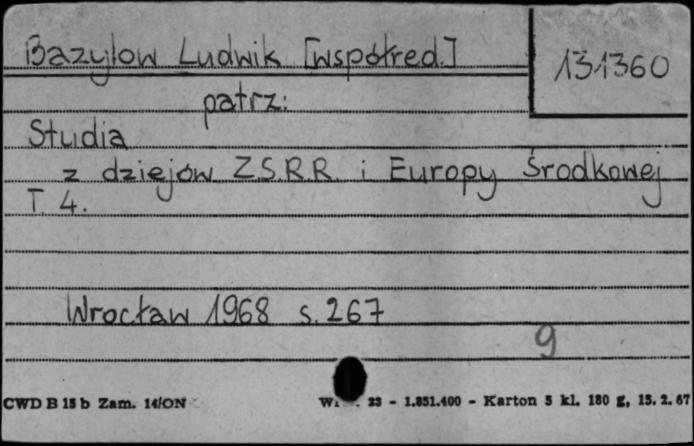 Bazylow Ludwik [współred.]
131360
patrz:
Studia
z dziejów ZSRR i Europy Środkowej
T. 4.
Wrocław 1968 s. 267
9
CWD B 15 b Zam. 14/ON
23 - 1.851.400 - Karton 5 kl. 180 g, 15. 2. 67